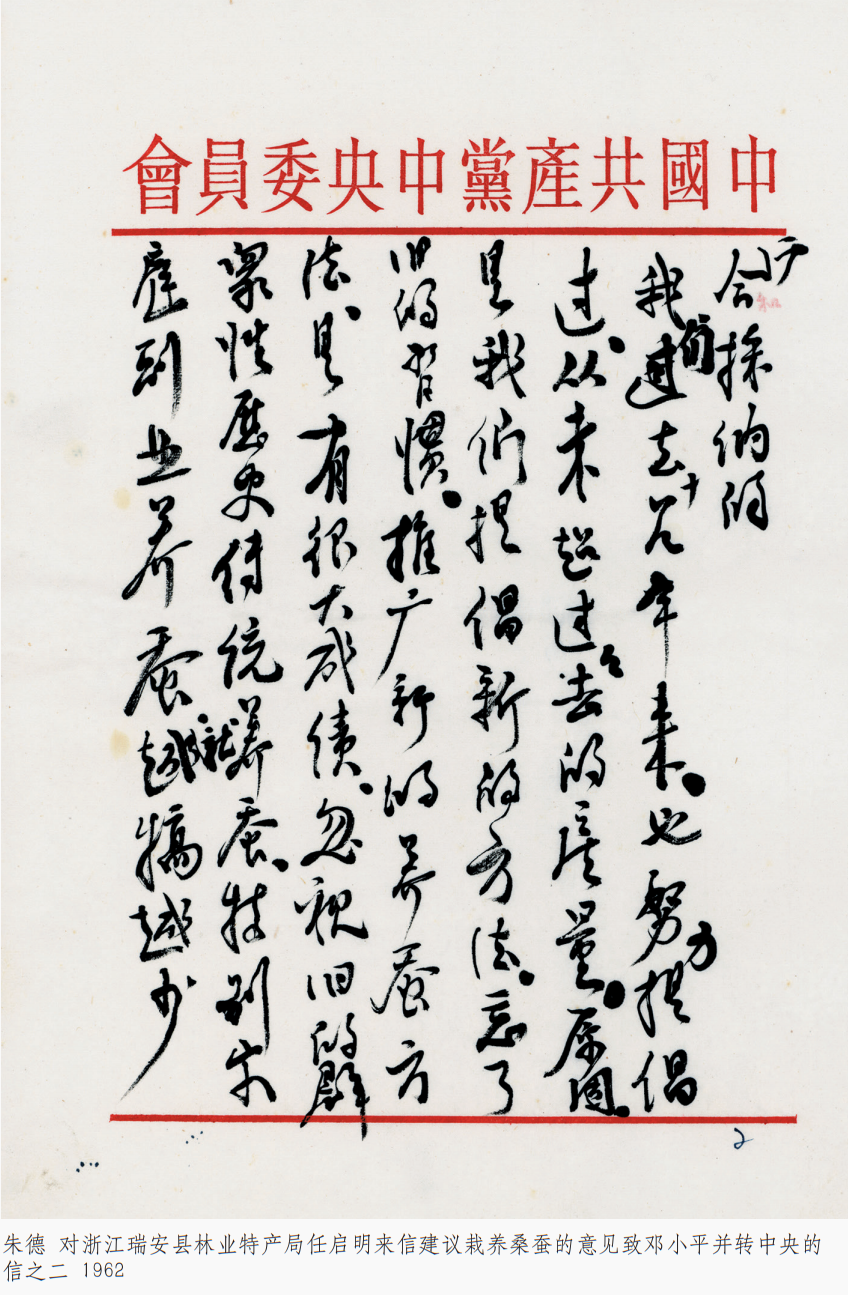 中國共產黨中央委員會
会採纳的
我们过去十几年来。也努力提倡
过、从未超过々去的产量。原因、
是我们提倡新的方法。忘了
旧的習惯。推广新的养蚕方
法、是有很大成绩、忽视旧的群
眾性历史传统养蚕、特别家
庭副业养蚕、就越搞越少
2
朱德 对浙江瑞安县林业特产局任启明来信建议栽养桑蚕的意见致邓小平并转中央的
信之二 1962